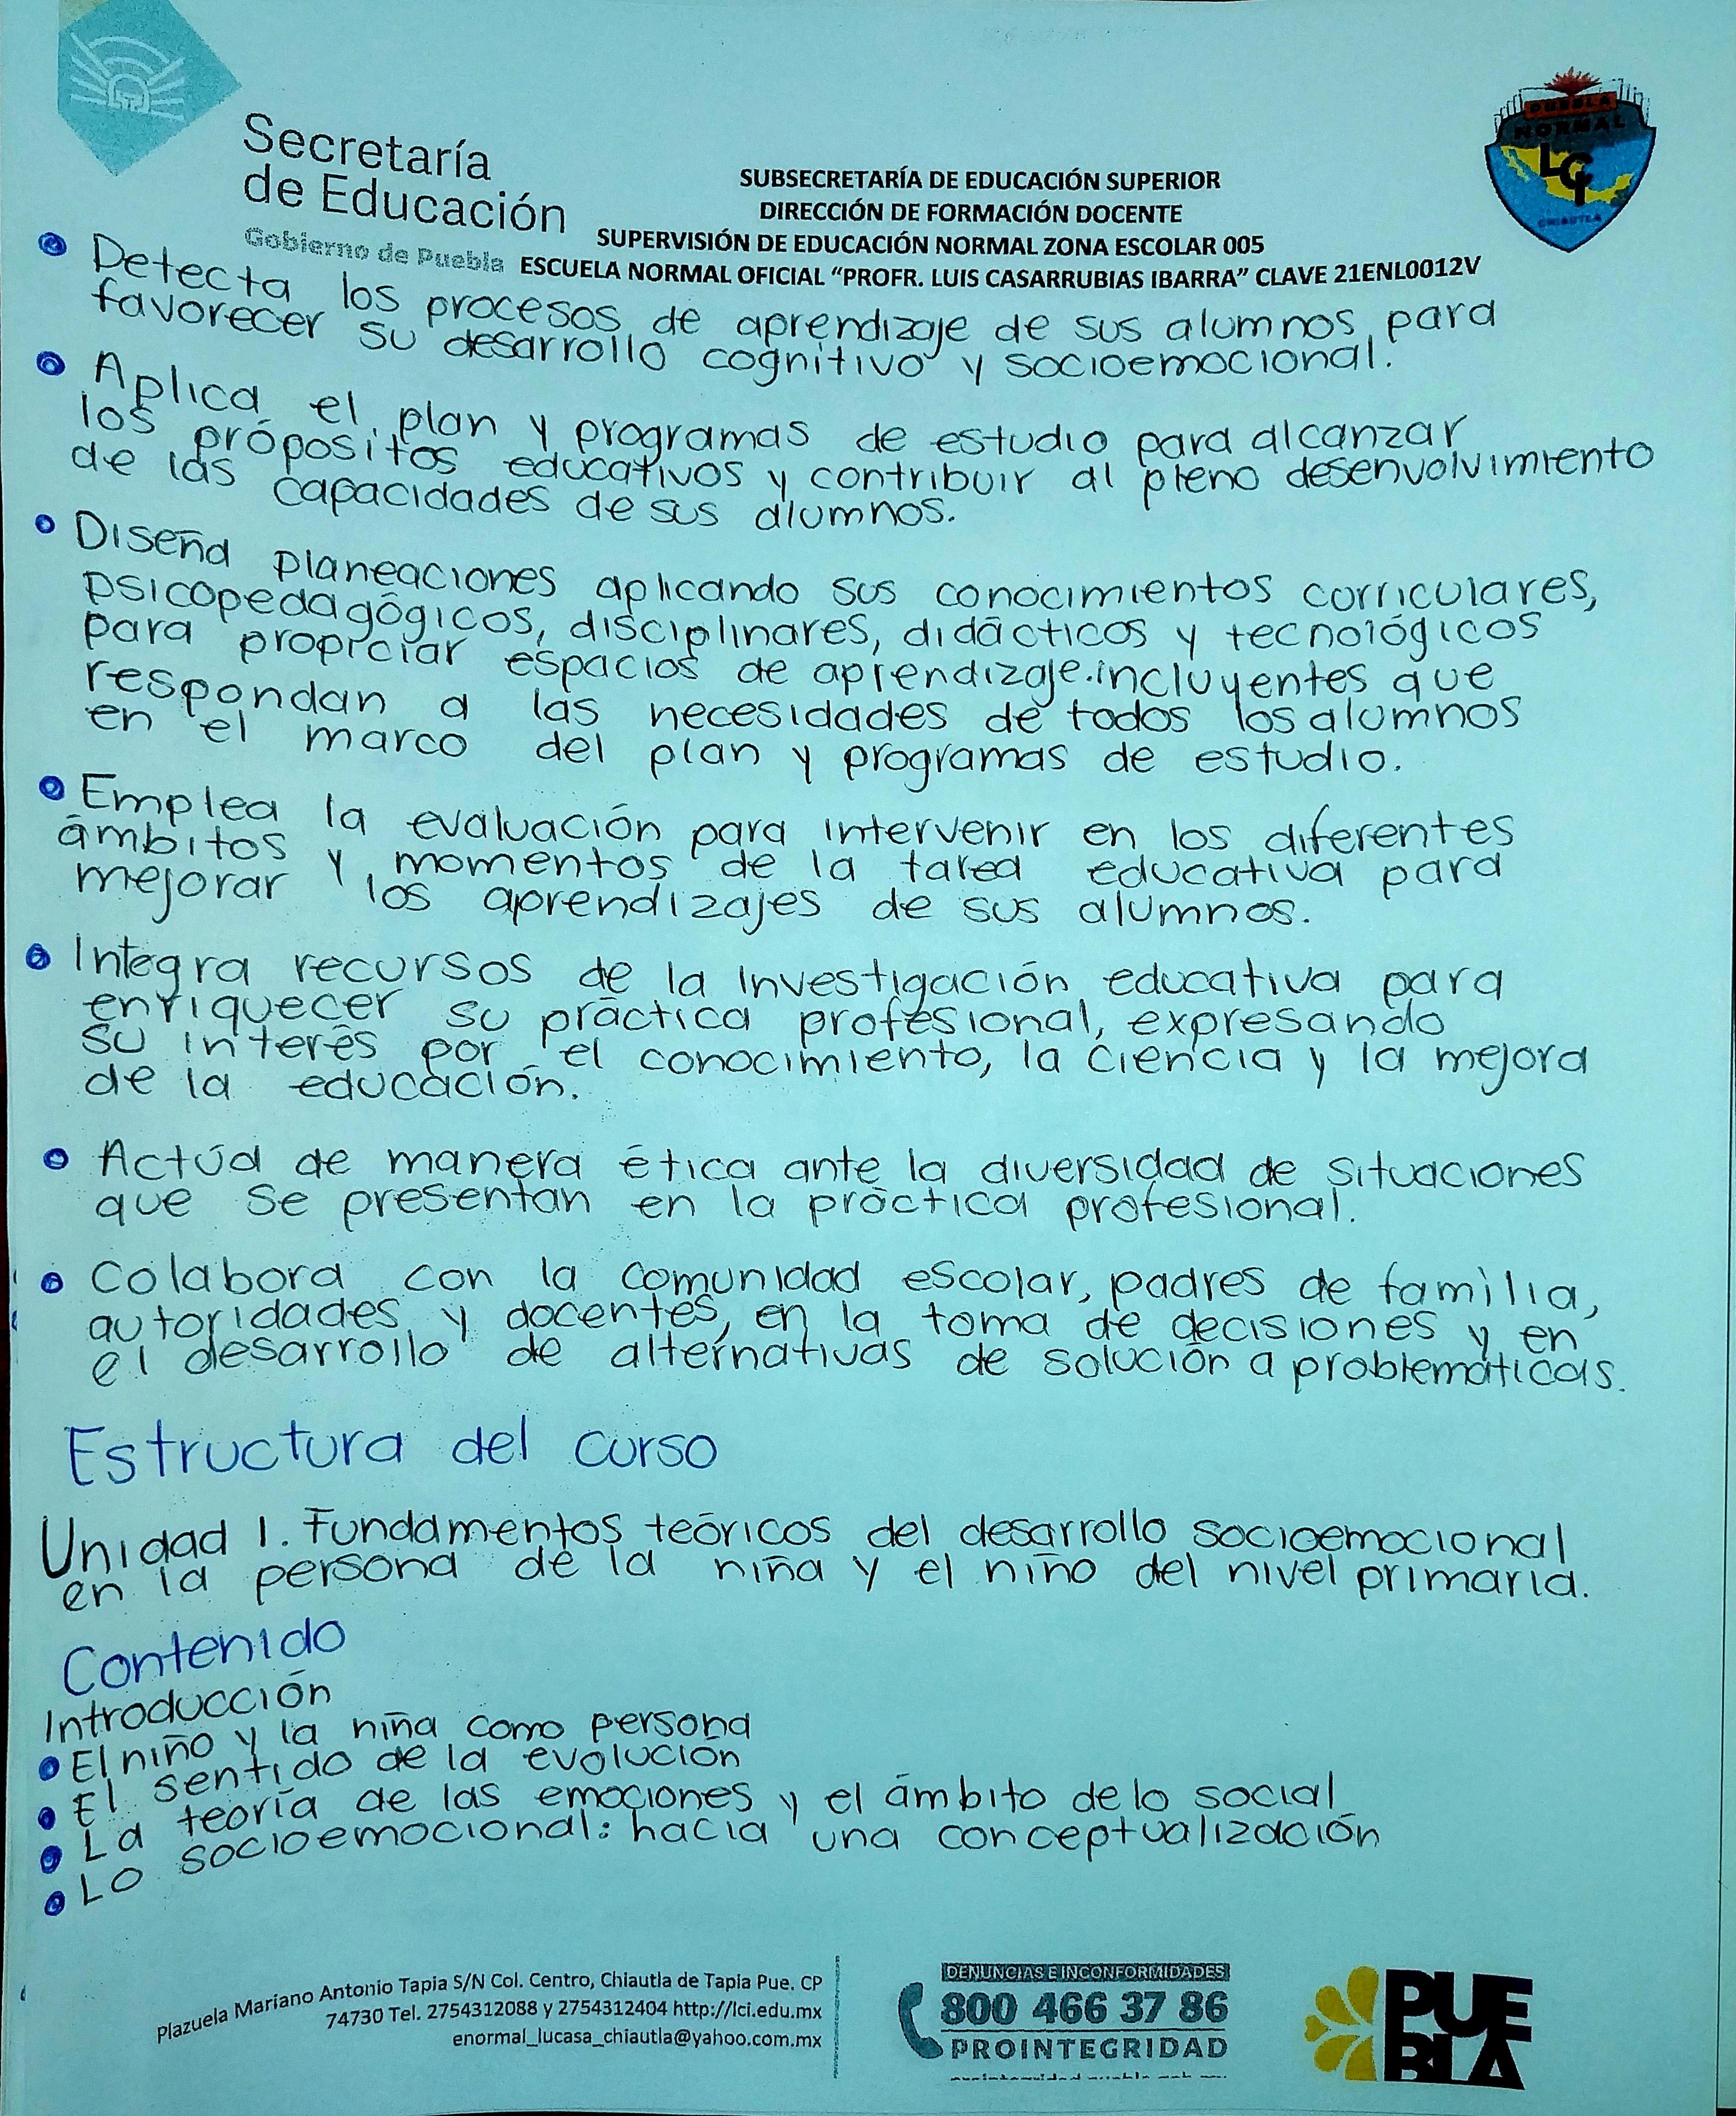 Secretaría
de Educación
Gobierno de Puebla
PUEBLA
NORMAL
LCI
CHIAUTLA
SUBSECRETARÍA DE EDUCACIÓN SUPERIOR
DIRECCIÓN DE FORMACIÓN DOCENTE
SUPERVISIÓN DE EDUCACIÓN NORMAL ZONA ESCOLAR 005
ESCUELA NORMAL OFICIAL “PROFR. LUIS CASARRUBIAS IBARRA” CLAVE 21ENL0012V
Detecta los procesos de aprendizaje de sus alumnos para
favorecer su desarrollo cognitivo y socioemocional.
Aplica el plan y programas de estudio para alcanzar
los própositos educativos y contribuir al pleno desenvolvimiento
de las capacidades de sus alumnos.
Diseña planeaciones aplicando sus conocimientos curriculares,
psicopedagógicos, disciplinares, didácticos y tecnológicos
para propiciar espacios de aprendizaje incluyentes que
respondan a las necesidades de todos los alumnos
en el marco del plan y programas de estudio.
Emplea la evaluación para intervenir en los diferentes
ámbitos y momentos de la tarea educativa para
mejorar los aprendizajes de sus alumnos.
Integra recursos de la investigación educativa para
enriquecer su práctica profesional, expresando
su interés por el conocimiento, la ciencia y la mejora
de la educación.
Actúa de manera ética ante la diversidad de situaciones
que se presentan en la práctica profesional.
Colabora con la comunidad escolar, padres de familia,
autoridades y docentes, en la toma de decisiones y en
el desarrollo de alternativas de solución a problemáticas.
Estructura del curso
Unidad 1. Fundamentos teóricos del desarrollo socioemocional
en la persona de la niña y el niño del nivel primaria.
Contenido
Introducción
El niño y la niña como persona
El sentido de la evolución
La teoría de las emociones y el ámbito de lo social
Lo socioemocional: hacia una conceptualización
Plazuela Mariano Antonio Tapia S/N Col. Centro, Chiautla de Tapia Pue. CP
74730 Tel. 2754312088 y 2754312404 http://lci.edu.mx
enormal_lucasa_chiautla@yahoo.com.mx
DENUNCIAS E INCONFORMIDADES
800 466 37 86
PROINTEGRIDAD
PUE
BLA